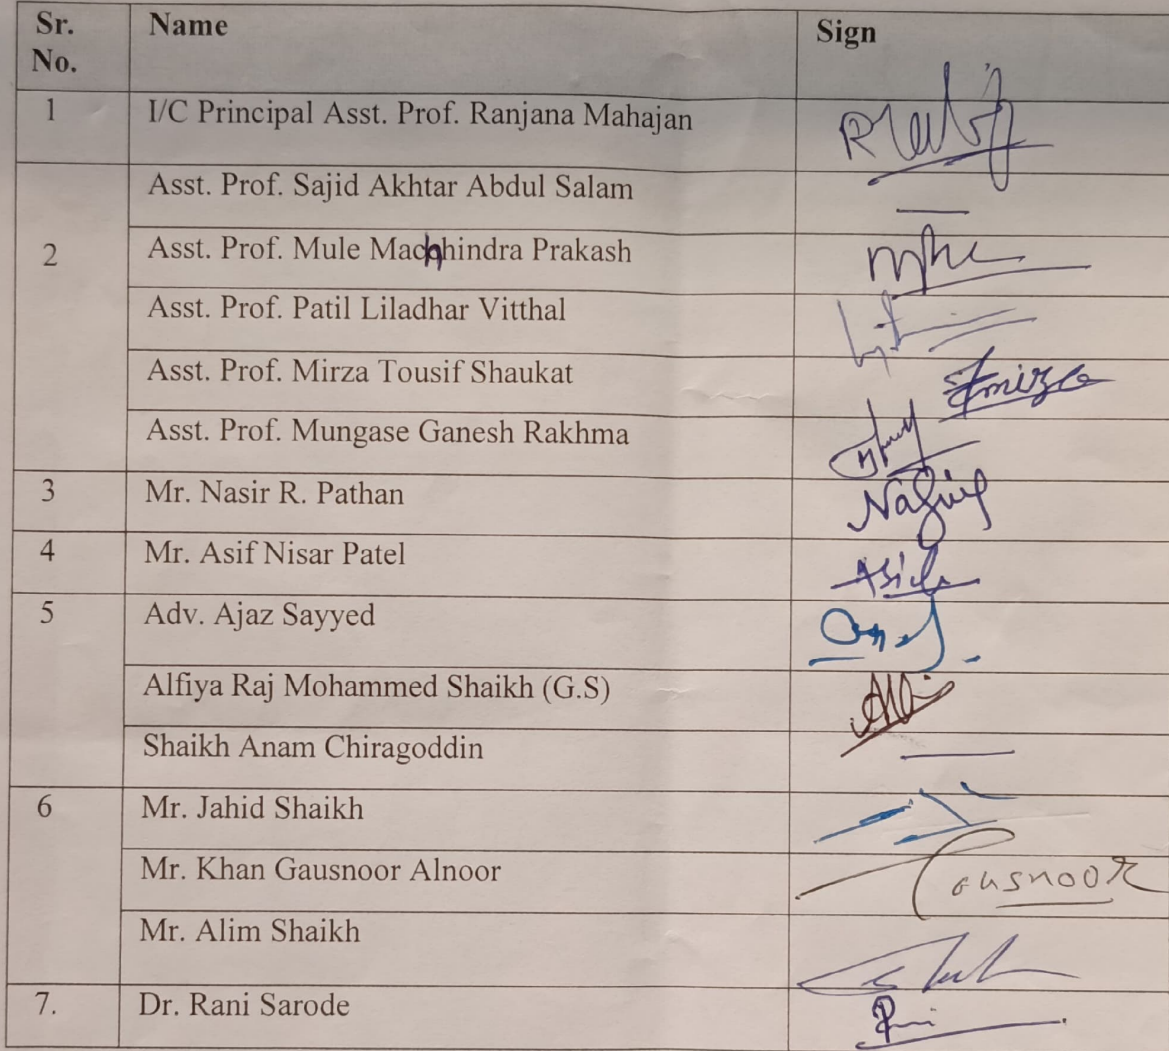 Sr. No. Name Sign
1 I/C Principal Asst. Prof. Ranjana Mahajan
Asst. Prof. Sajid Akhtar Abdul Salam
2 Asst. Prof. Mule Machhindra Prakash
Asst. Prof. Patil Liladhar Vitthal
Asst. Prof. Mirza Tousif Shaukat Tmirza
Asst. Prof. Mungase Ganesh Rakhma
3 Mr. Nasir R. Pathan
4 Mr. Asif Nisar Patel
5 Adv. Ajaz Sayyed
Alfiya Raj Mohammed Shaikh (G.S)
Shaikh Anam Chiragoddin
6 Mr. Jahid Shaikh
Mr. Khan Gausnoor Alnoor Gausnoor
Mr. Alim Shaikh
7. Dr. Rani Sarode